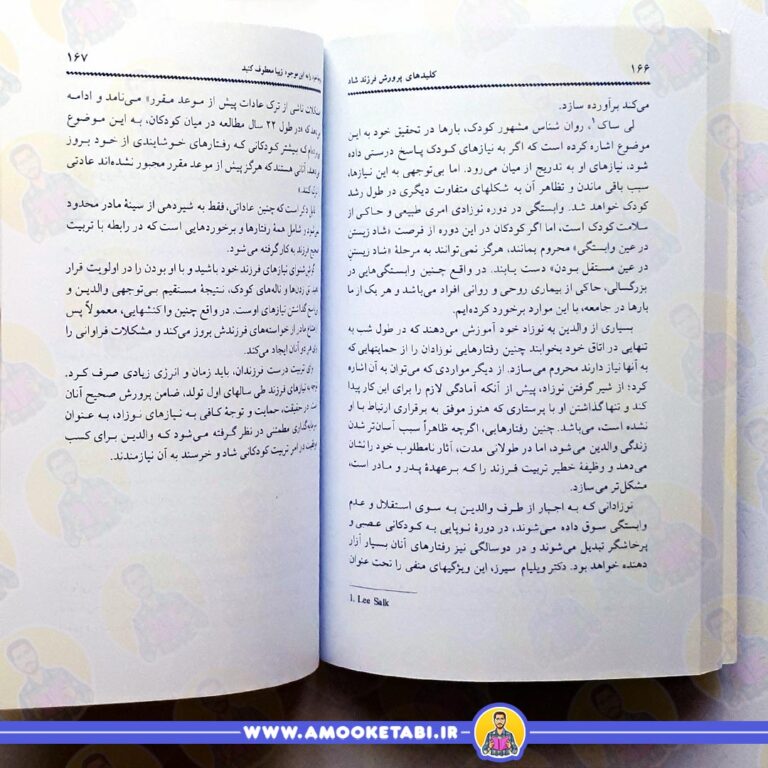 ۱۶۶
کلیدهای پرورش فرزند شاد
می‌کند برآورده سازد.
لی ساک۱، روان شناس مشهور کودک، بارها در تحقیق خود به این
موضوع اشاره کرده است که اگر به نیازهای کودک پاسخ درستی داده
شود، نیازهای او به تدریج از میان می‌رود. اما بی‌توجهی به این نیازها،
سبب باقی ماندن و تظاهر آن به شکلهای متفاوت دیگری در طول رشد
کودک خواهد شد. وابستگی در دوره نوزادی امری طبیعی و حاکی از
سلامت کودک است، اما اگر کودکان در این دوره از فرصت «شاد زیستن
در عین وابستگی» محروم بمانند، هرگز نمی‌توانند به مرحلهٔ «شاد زیستن
در عین مستقل بودن» دست یابند. در واقع چنین وابستگی‌هایی در
بزرگسالی، حاکی از بیماری روحی و روانی افراد می‌باشد و هر یک از ما
بارها در جامعه، با این موارد برخورد کرده‌ایم.
بسیاری از والدین به نوزاد خود آموزش می‌دهند که در طول شب به
تنهایی در اتاق خود بخوابند چنین رفتارهایی نوزادان را از حمایتهایی که
به آنها نیاز دارند محروم می‌سازد. از دیگر مواردی که می‌توان به آن اشاره
کرد؛ از شیر گرفتن نوزاد، پیش از آنکه آمادگی لازم را برای این کار پیدا
کند و تنها گذاشتن او با پرستاری که هنوز موفق به برقراری ارتباط با او
نشده است، می‌باشد. چنین رفتارهایی، اگرچه ظاهراً سبب آسان‌تر شدن
زندگی والدین می‌شود، اما در طولانی مدت، آثار نامطلوب خود را نشان
می‌دهد و وظیفهٔ خطیر تربیت فرزند را که برعهدهٔ پدر و مادر است،
مشکل‌تر می‌سازد.
نوزادانی که به اجبار از طرف والدین به سوی استقلال و عدم
وابستگی سوق داده می‌شوند، در دورهٔ نوپایی به کودکانی عصبی و
پرخاشگر تبدیل می‌شوند و در دوسالگی نیز رفتارهای آنان بسیار آزار
دهنده خواهد بود. دکتر ویلیام سیرز، این ویژگیهای منفی را تحت عنوان
1. Lee Salk
۱۶۷
را به این موجود زیبا معطوف کنید
مشکلات ناشی از ترک عادات پیش از موعد مقرر» می‌نامد و ادامه
که «در طول ۲۲ سال مطالعه در میان کودکان، به این موضوع
که بیشتر کودکانی که رفتارهای خوشایندی از خود بروز
آنانی هستند که هرگز پیش از موعد مقرر مجبور نشده‌اند عادتی
کنند.»
ذکر است که چنین عاداتی، فقط به شیردهی از سینهٔ مادر محدود
و شامل همهٔ رفتارها و برخوردهایی است که در رابطه با تربیت
صحیح فرزند به کار گرفته می‌شود.
نیازهای فرزند خود باشید و با او بودن را در اولویت قرار
زدن‌ها و ناله‌های کودک، نتیجهٔ مستقیم بی‌توجهی والدین و
گذاشتن نیازهای اوست. در واقع چنین واکنشهایی، معمولاً پس
مادر از خواسته‌های فرزندش بروز می‌کند و مشکلات فراوانی را
هر دو آنان ایجاد می‌کند.
برای تربیت درست فرزندان، باید زمان و انرژی زیادی صرف کرد.
توجه به نیازهای فرزند طی سالهای اول تولد، ضامن پرورش صحیح آنان
است در حقیقت، حمایت و توجهٔ کافی به نیازهای نوزاد، به عنوان
سرمایه‌گذاری مطمئنی در نظر گرفته می‌شود که والدین برای کسب
موفقیت در امر تربیت کودکانی شاد و خرسند به آن نیازمندند.
WWW.AMOOKETABI.IR